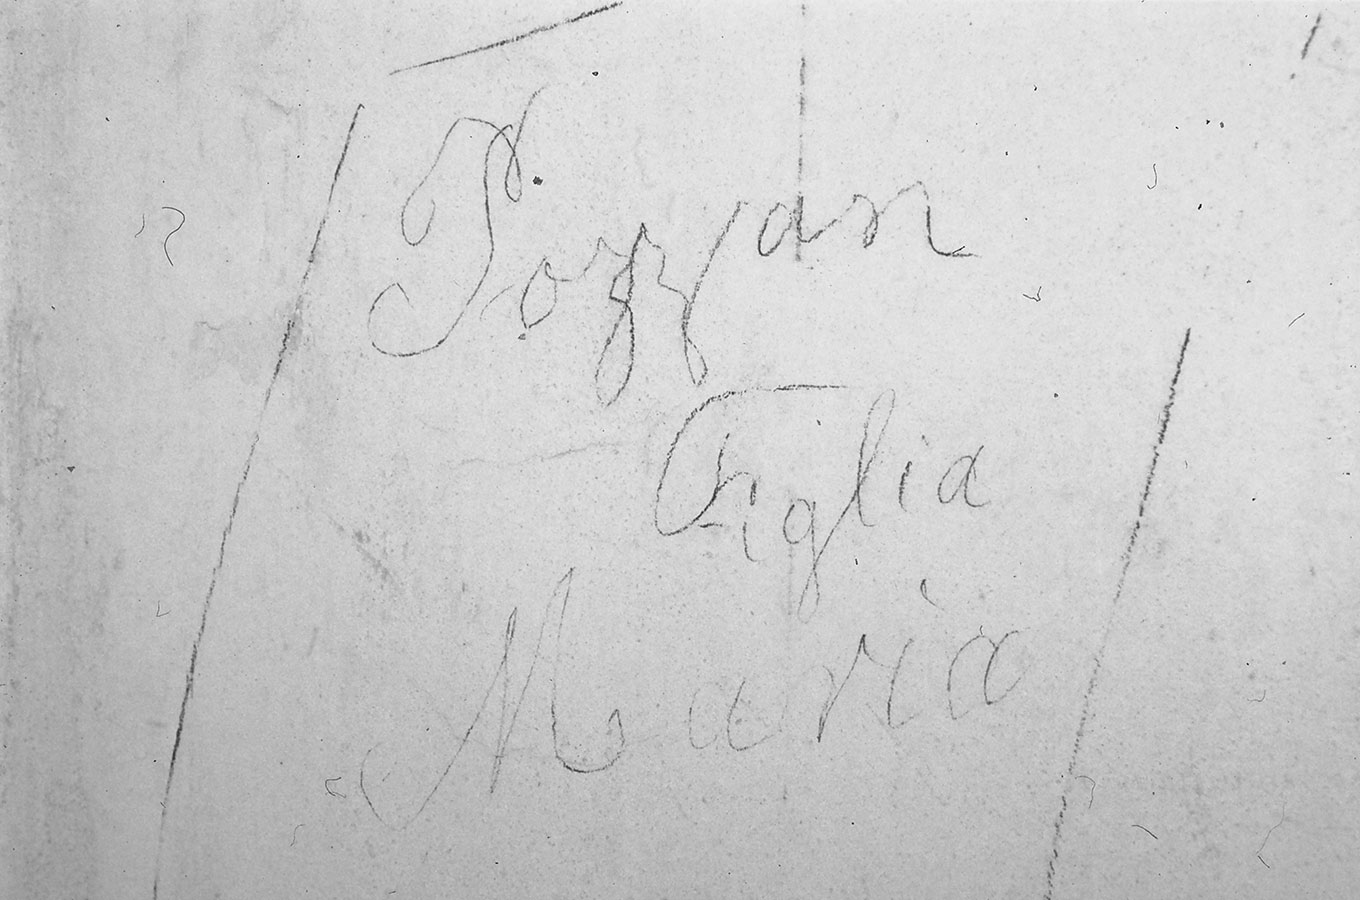 Pozzan
Figlia
Maria